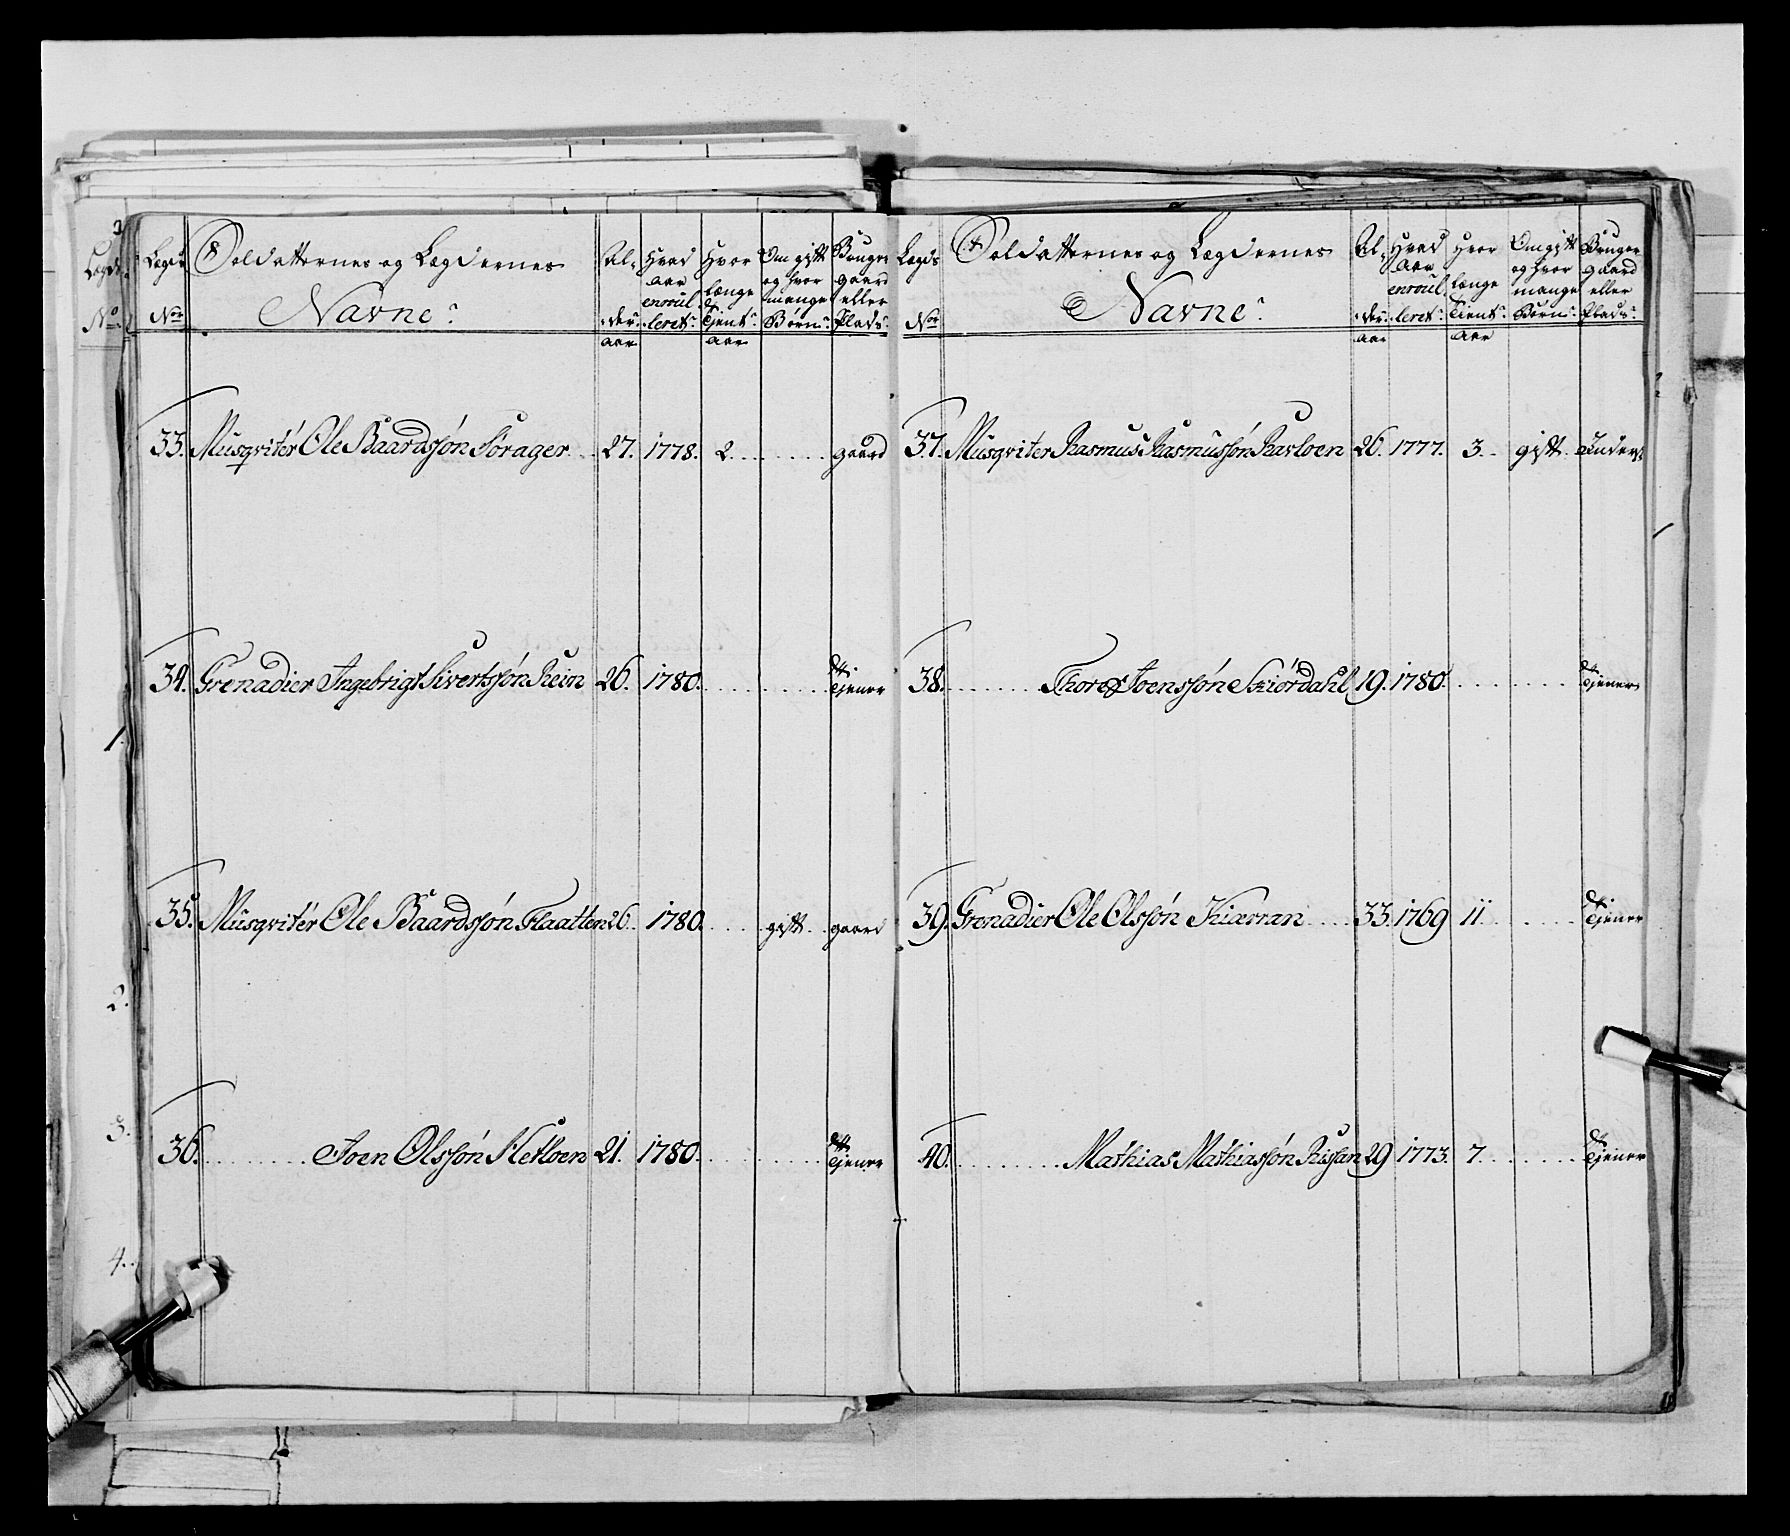 Legds No: Soldatternes og Lægdernes Navne: Al,, der: aar Hvad aar enroul leret: Hvor længe Tjent: aar Om gift og hvor mange Børn: Bruger gaard eller Plads:
33. Musqvitér Ole Baardssøn Forager 27. 1778. 2. gaard
34. Grenadier Ingebrigt Sivertssøn Reim 26. 1780. Tjener
35. Musqvitér Ole Baardssøn Flaatten 26. 1780. gift gaard
36. Joen Olssøn Sletloen 21. 1780. Tjener
Legds No: Soldatternes og Lægdernes Navne: Al,, der: aar Hvad aar enroul leret: Hvor længe Tient: aar Om gift og hvor mange Børn: Bruger gaard eller Plads:
37. Musqviter Rasmus Rasmussøn Ravloen 26. 1777. 3. gift. Inderst
38. Thore Joenssøn Skiørdahl 19. 1780. Tjener
39. Grenadier Ole Olssøn Kiærran 33. 1769 11 Tjener
40. Mathias Mathiassøn Rissan 29 1773. 7. Tjener
1.
2.
3.
4.